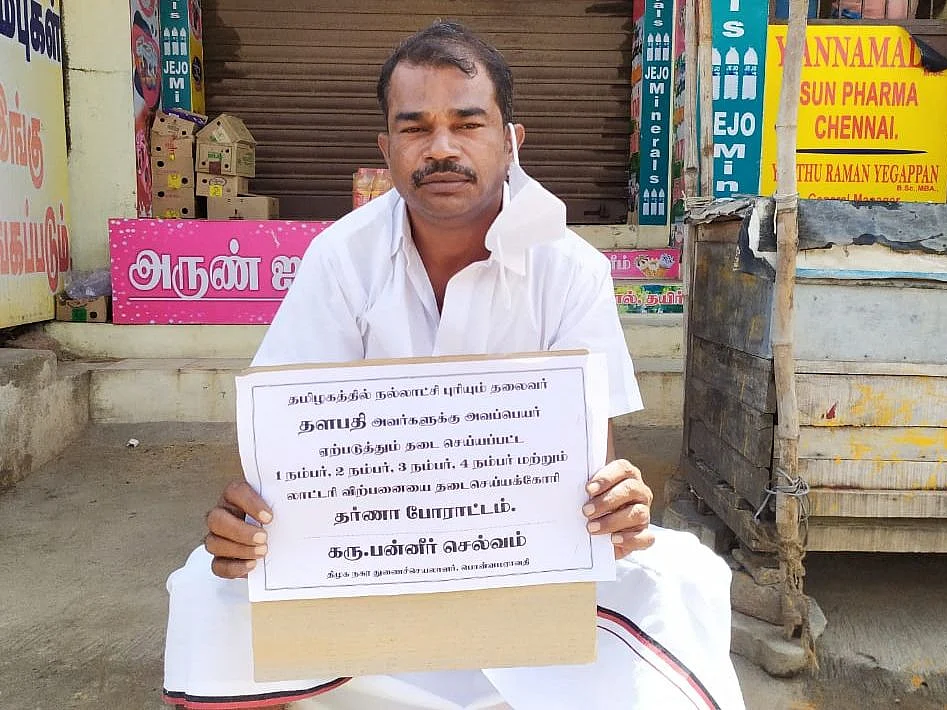 ம்புகள்
இங்கு
கப்படும்
JEJO
Mi
JEJO
Minerals
EJO
Min
SUN PHARMA
CHENNAI.
RAMAN YEGAPPAN
B.Sc.,MBA.,
General Manager
அருண் ஐ
ரீம்
பால், தயிர்
தமிழகத்தில் நல்லாட்சி புரியும் தலைவர்
தளபதி அவர்களுக்கு அவப்பெயர்
ஏற்படுத்தும் தடை செய்யப்பட்ட
1 நம்பர், 2 நம்பர், 3 நம்பர், 4 நம்பர் மற்றும்
லாட்டரி விற்பனையை தடைசெய்யக்கோரி
தர்ணா போராட்டம்.
கரு.பன்னீர் செல்வம்
திமுக நகர துணைச்செயலாளர், பொன்னமராவதி